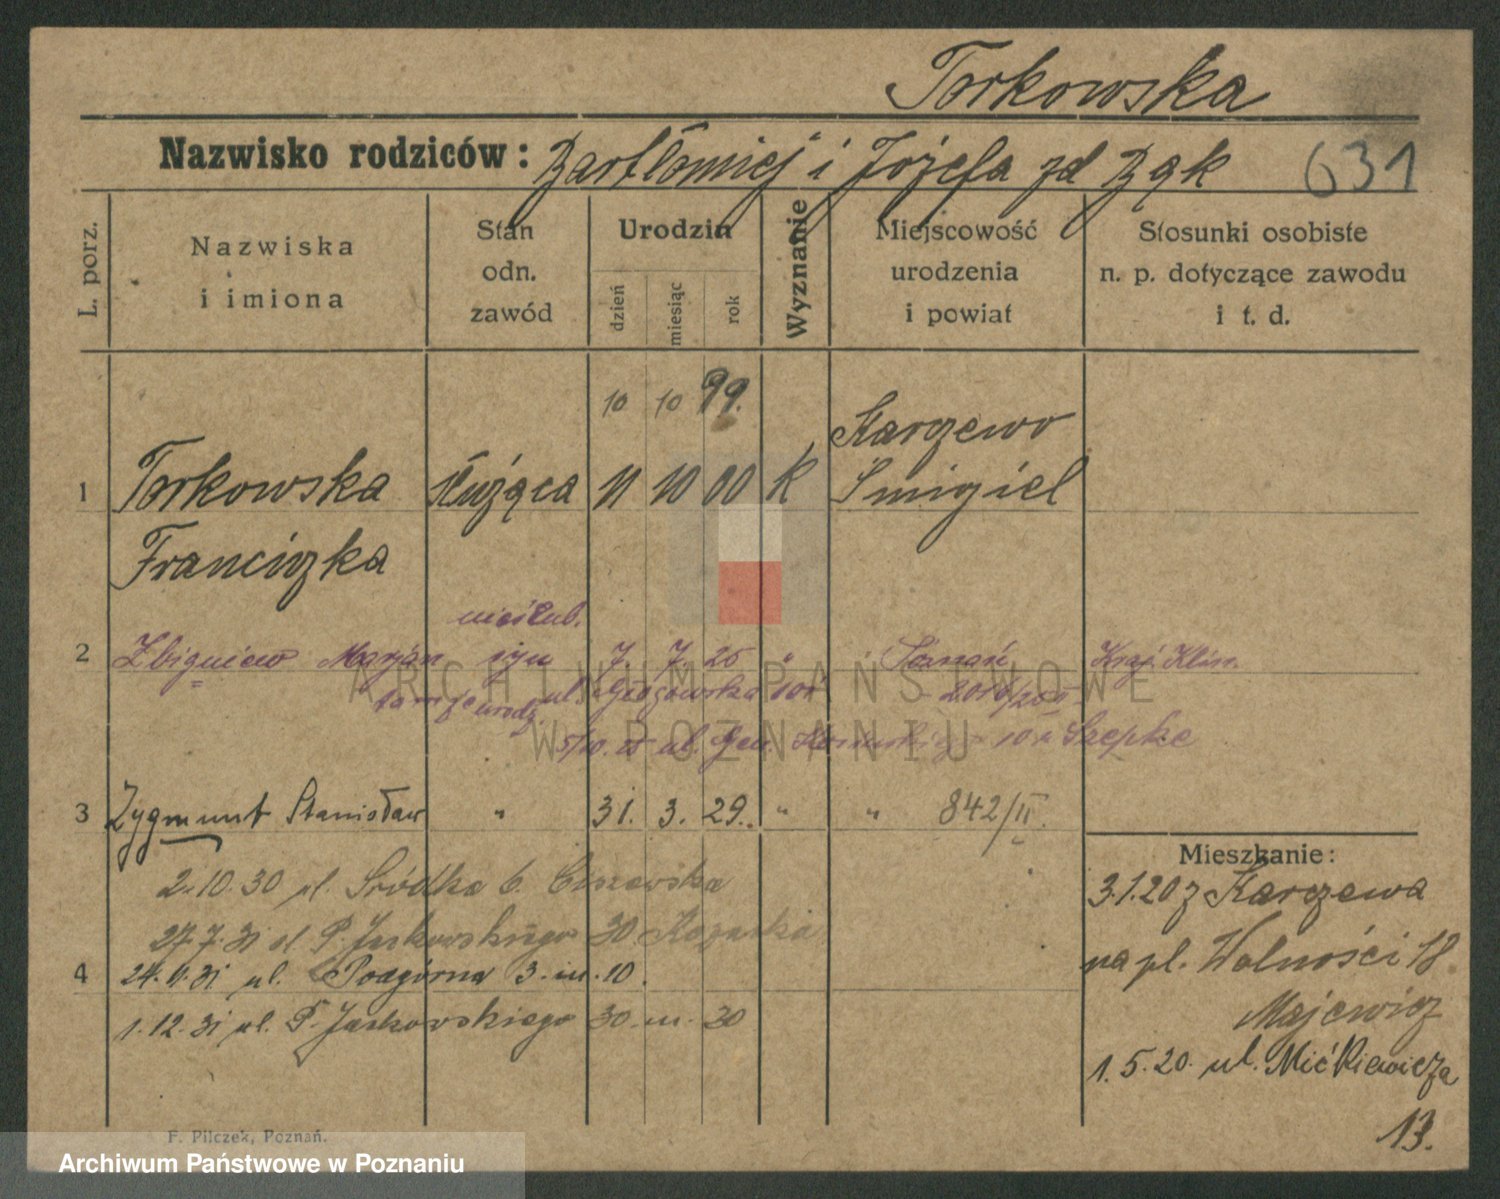 Torkowska
Nazwisko rodziców: Bartłomiej i Józefa zd Bąk 631
L. porz.
Nazwiska i imiona
Stan odn. zawód
Urodzin
dzień miesiąc rok
Wyznanie
Miejscowość urodzenia i powiat
Stosunki osobiste n. p. dotyczące zawodu i t. d.
10 10 99.
Karczewo
1 Torkowska służąca 11 10 00 k Śmigiel
Franciszka
nieślub.
2 Zbigniew Marjan syn 7. 7. 25 " Poznań Kraj. Klin.
ul. Głogowska
ul. Gen. 10 Szepke
3 Zygmunt Stanisław " 31. 3. 29. " " 842/II.
2.10.30 ul. Śródka 6. Ciszewska
27.7.31 ul. P. Jackowskiego 30
4 24.11.31 ul. Podgórna 3. m. 10.
1.12.31 ul. P. Jackowskiego 30 m. 20
Mieszkanie:
3.1.20 z Karczewa
na pl. Wolności 18
Majewicz
1.5.20. ul. Mickiewicza
13.
F. Pilczek, Poznań.
ARCHIWUM PAŃSTWOWE
W POZNANIU
Archiwum Państwowe w Poznaniu